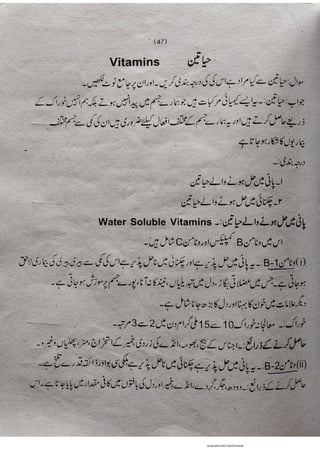 (47)
Vitamins حیاتین
سوال: حیاتین سے کیا مراد ہے اس کی درجہ بندی کریں۔ اور ان پر جامع نوٹ لکھیں۔
جواب: حیاتین:۔ یہ ایسے کیمیائی مرکبات ہیں جو ہمارے جسم میں پیدا نہیں ہوتے بلکہ ہم انہیں خوراک کے
ذریعے حاصل کرتے ہیں اور یہ ہمارے جسم کے مختلف افعال کیلئے ضروری ہیں ان کی کمی سے جسم مختلف
بیماریوں کا شکار ہو جاتا ہے
درجہ بندی:۔
۱۔ پانی میں حل ہونے والے حیاتین
۲۔ چکنائی میں حل ہونے والے حیاتین
پانی میں حل ہونے والے حیاتین:۔ Water Soluble Vitamins
اس میں وٹامن B کمپلیکس اور وٹامن C شامل ہیں۔
(i) وٹامن B-1:۔ یہ پانی میں حل پذیر ہے اور چکنائی میں ناحل پذیر ہے اس کی کمی سے بیری بیری کی بیماری لاحق
ہو جاتی ہے۔ جس میں عضلاتی بگاڑ، دل میں تبدیلیاں، نیند کا نہ آنا، پورے جسم پر سوزش ہو جاتی ہے۔
دیگر علامات میں خون کا بہنا اور دل کا بڑھ جانا شامل ہے۔
خوراک:۔ معالجانہ خوراک 10 سے 15 ملی گرام دن میں 2 سے 3 مرتبہ۔
حاصل کرنے کے ذرائع:۔ اجناس کے بیج، بھوسہ، انڈے کی زردی، خمیر کے استخراج، مٹر، پھلیاں وغیرہ۔
(ii) وٹامن B-2:۔ یہ پانی میں حل پذیر ہے چکنائی میں ناحل پذیر ہے ہلکی سی بو اور ذائقہ قدرے تلخ ہے۔
حاصل کرنے کے ذرائع:۔ دودھ، جگر، گردے، انڈے، خمیر اور دل کی بافتوں میں کافی مقدار میں پایا جاتا ہے۔ اس
Scanned with CamScanner